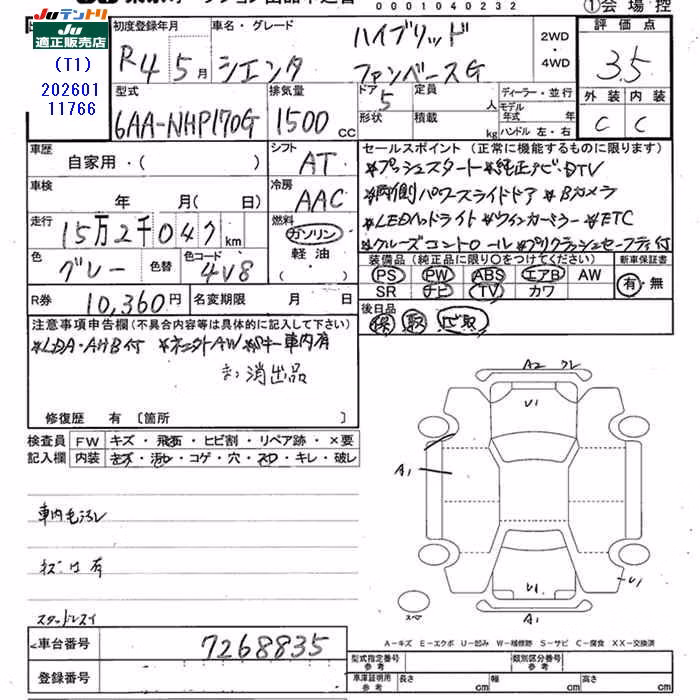 JUテントリ
JU 適正販売店
(T1)
202601
11766
0001040232
①会場控
初度登録年月
R4年5月
車名・グレード
ハイブリッド
シエンタ
ファンベースG
2WD
・
4WD
評価点
3.5
外装 内装
C C
型式
6AA-NHP170G
排気量
1500cc
ドア 5
形状
定員 人
積載 kg
ディーラー・並行
モデル年式 年
ハンドル 左・右
車歴
自家用・( )
シフト
AT
車検
年 月( 日)
冷房
AAC
走行
15万2千047km
燃料
ガソリン
軽油・
( )
色
グレー
色替
色コード
4V8
R券
10,360円
名変期限 月 日
セールスポイント(正常に機能するものに限ります)
*プッシュスタート*純正ナビ・DTV
*両側パワースライドドア *Bカメラ
*LEDヘッドライト *ウインカーミラー *ETC
*クルーズコントロール *プリクラッシュセーフティ付
装備品(純正品に限り○をつけてください)
PS PW ABS エアB AW
SR ナビ TV カワ
新車保証書
有・無
後日品
保 取
注意事項申告欄(不具合内容等は具体的に記入して下さい)
*LDA・AHB付
車内有
消出品
修復歴 有 〔箇所 〕
検査員記入欄
FW キズ・飛石・ヒビ割・リペア跡・×要
内装 キズ・汚レ・コゲ・穴・スレ・キレ・破レ
車内毛汚レ
キズ凹有
スタッドレスタイ
A2
U1
A1
U1
U1
A1
スペア
A-キズ E-エクボ U-凹み W-補修跡 S-サビ C-腐食 XX-交換済
車台番号
7268835
登録番号
型式指定番号
参考
類別区分番号
参考
車庫証明用
参考
長さ cm
幅 cm
高さ cm